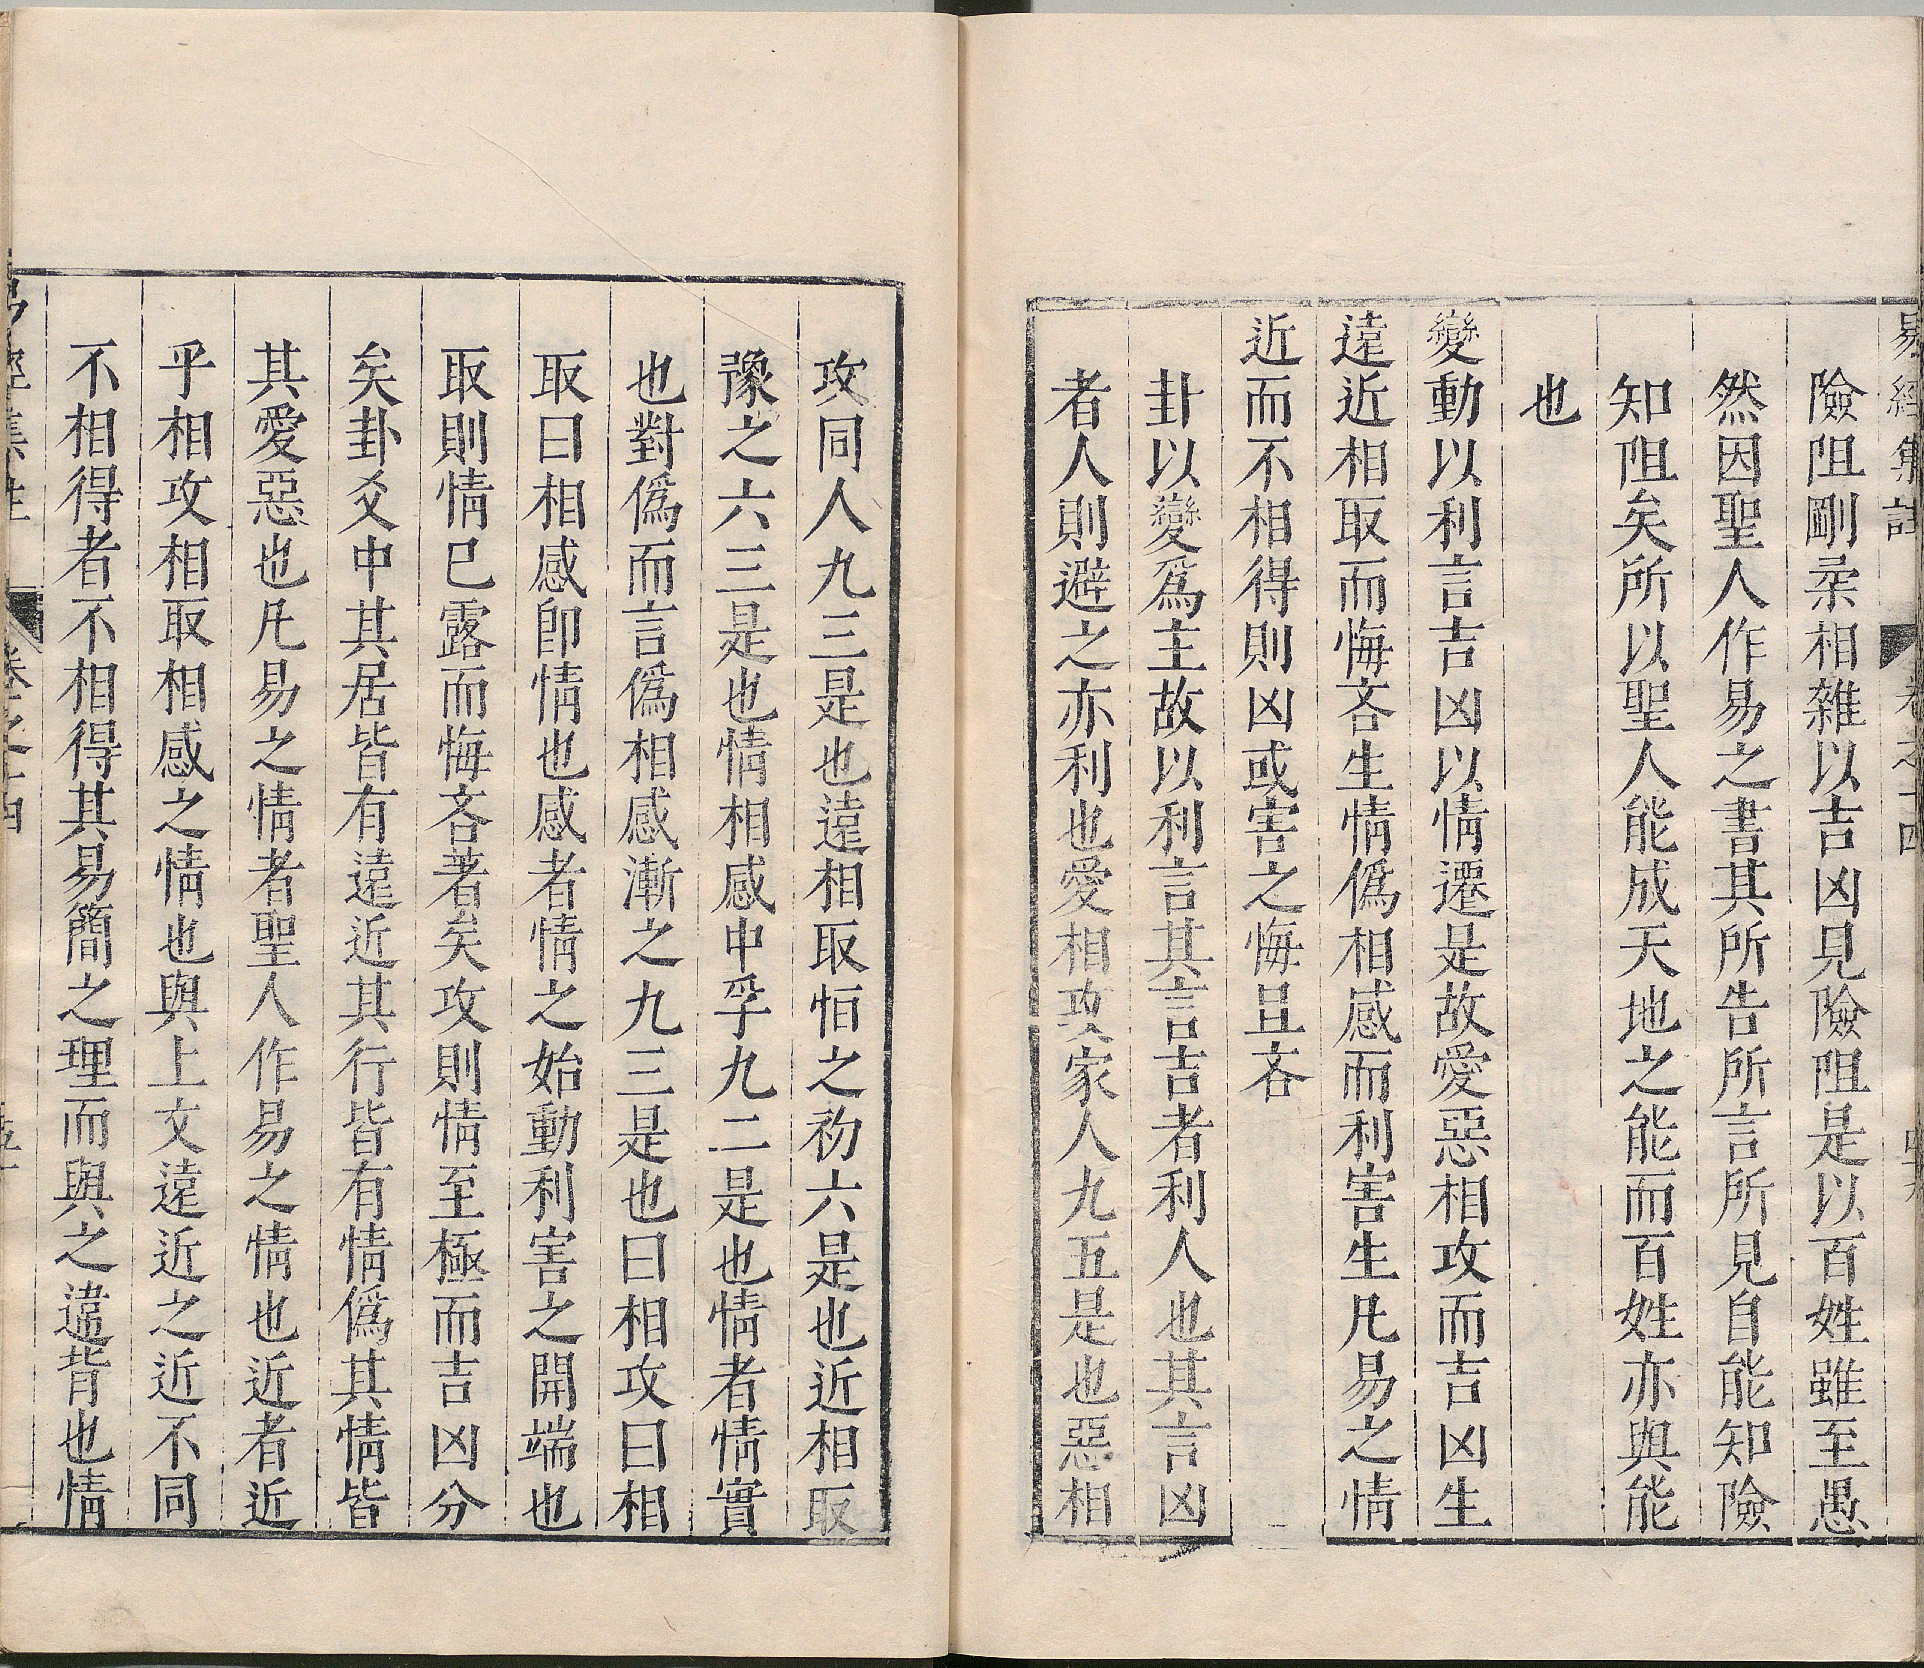 易經集註 卷之十四
險阻剛柔相雜以吉凶見險阻是以百姓雖至愚
然因聖人作易之書其所告所言所見自能知險
知阻矣所以聖人能成天地之能而百姓亦與能
也
變動以利言吉凶以情遷是故愛惡相攻而吉凶生
遠近相取而悔吝生情僞相感而利害生凡易之情
近而不相得則凶或害之悔且吝
卦以變爲主故以利言其言吉者利人也其言凶
者人則避之亦利也愛相攻家人九五是也惡相
攻同人九三是也遠相取恒之初六是也近相取
豫之六三是也情相感中孚九二是也情者情實
也對僞而言僞相感漸之九三是也曰相攻曰相
取曰相感卽情也感者情之始動利害之開端也
取則情已露而悔吝著矣攻則情至極而吉凶分
矣卦爻中其居皆有遠近其行皆有情僞其情皆
其愛惡也凡易之情者聖人作易之情也近者近
乎相攻相取相感之情也與上文遠近之近不同
不相得者不相得其易簡之理而與之違背也情
易經集註 卷之十四